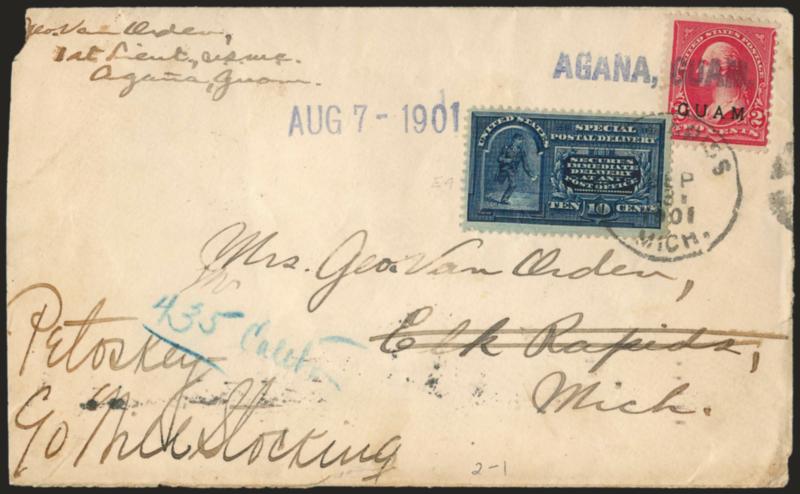 Geo. Van Orden,
1st Lieut., USMC.
Agaña, Guam.
AGANA, GUAM.
AUG 7 - 1901
UNITED STATES POSTAGE
GUAM
2 CENTS 2
UNITED STATES
SPECIAL
POSTAL DELIVERY
SECURES
IMMEDIATE
DELIVERY
AT ANY
POST OFFICE
TEN 10 CENTS
MICH.
Mrs. Geo. Van Orden,
Elk Rapids,
Mich.
435
Petoskey
2-1